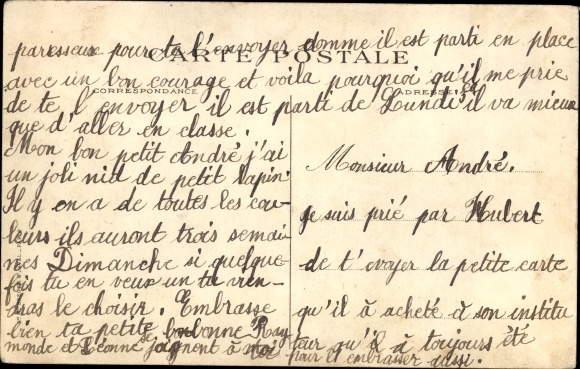 paresseux pour te l'envoyer comme il est parti en place
CARTE POSTALE
avec un bon courage et voila pourquoi qu'il me prie
CORRESPONDANCE
ADRESSE
de te l envoyer il est parti de Lundi ça il va mieux
que d'aller en classe.
Mon bon petit André j'ai
un joli nid de petit lapin
Il y en a de toutes les cou-
leurs ils auront trois semai-
nes Dimanche si quelque-
fois tu en veux un tu vien-
dras le choisir. Embrasse
bien ta petite bonne Ray
monde et Léonne se joignent à moi
pour t'embrasser aussi.
Monsieur André.
Je suis prié par Hubert
de t'evoyer la petite carte
qu'il à acheté à son institu
teur qu'il à toujours été